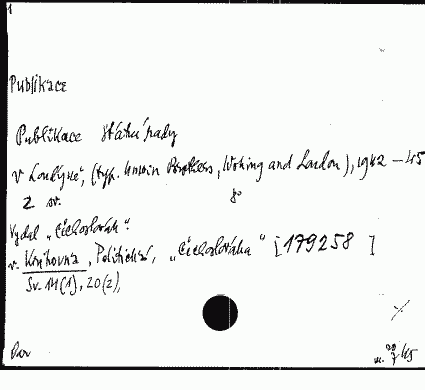 1
Publikace
Publikace Státu
v Londýně, (typ. Unwin Brothers, Woking and London), 1942–45
2 sv. 8°
Vydal „Čechoslovák“.
v. Knihovna, Politická, „Čechoslováka“ [179258]
Sv. 14(1), 20(2),
Dar
45